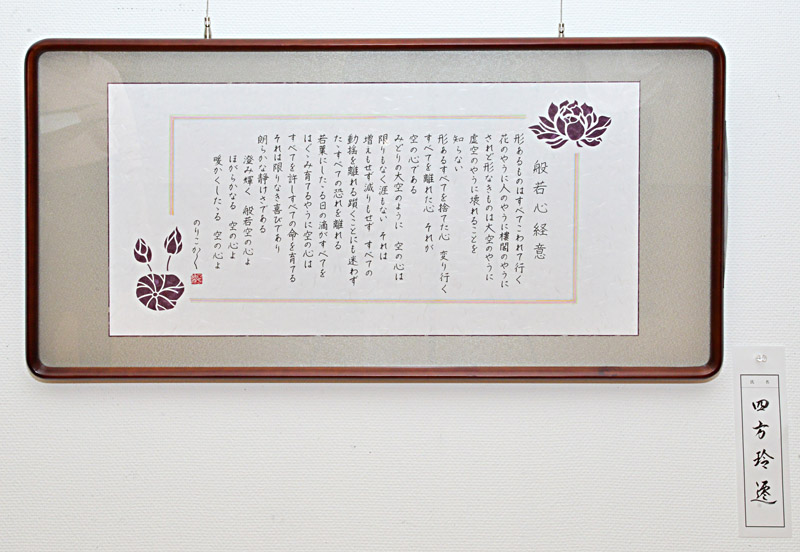 般若心経意
形あるものはすべてこわれて行く
花のやうに人のやうに樓閣のやうに
されど形なきものは大空のやうに
虚空のやうに壊れることを
知らない
形あるすべてを捨てた心 変り行く
すべてを離れた心 それが
空の心である
みどりの大空のように 空の心は
限りもなく涯もない それは
増えもせず減りもせず すべての
動揺を離れる 躓くことにも迷わず
たゞすべての恐れを離れる
若葉にしたゝる日の滴がすべてを
はぐゝみ育てるやうに空の心は
すべてを許しすべての命を育てる
それは限りなき喜びであり
朗らかな静けさである
澄み輝く 般若空の心よ
ほがらかなる 空の心よ
暖かくしたゝる 空の心よ
のりこかく
氏名
四方玲